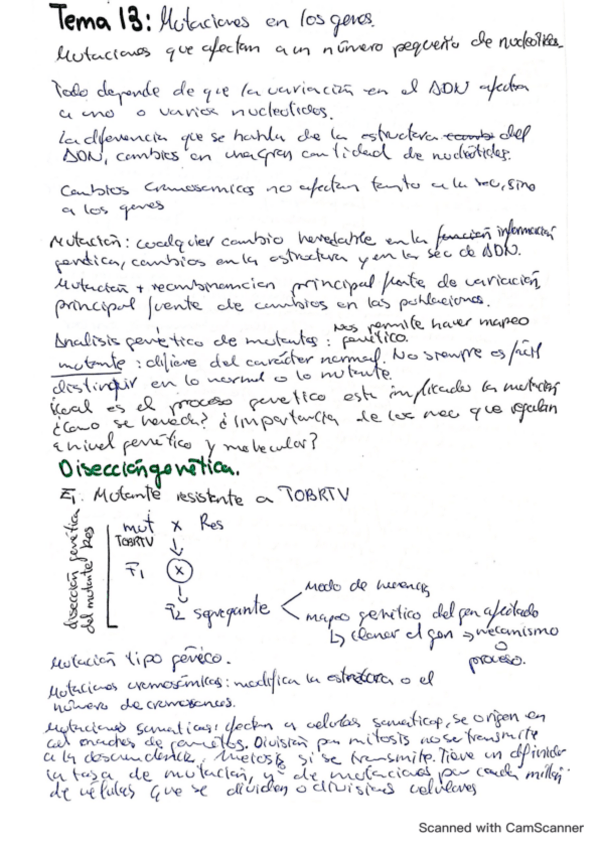 Tema 13: Mutaciones en los genes.
Mutaciones que afectan a un número pequeño de nucleótidos.
Todo depende de que la variación en el ADN afecta
a uno o varios nucleótidos.
La diferencia que se habla de la estructura del
ADN, cambios en una gran cantidad de nucleótidos.
Cambios cromosómicos no afectan tanto a la sec, sino
a los genes
Mutación: cualquier cambio heredable en la función información
genética, cambios en la estructura y en la sec de ADN.
Mutación + recombinación principal fuente de variación,
principal fuente de cambios en las poblaciones.
Nos permite hacer mapeo
Analisis genético de mutantes: genético.
mutante: difiere del carácter normal. No siempre es fácil
distinguir en lo normal o lo mutante.
¿Cual es el proceso genetico esta implicado la mutación
¿Como se hereda? ¿Importancia de los que regulan
a nivel genético y molecular?
Disección genética.
Mutante resistente a TOBRTV
disección genética
del mutante Res
mut x Res
TOBRTV
F1 x
F2 segregante
Modo de herencia
mapeo genético del gen afectado
clonar el gen → mecanismo
o
proceso.
Mutación tipo génico.
Mutaciones cromosómicas: modifica la estructura o el
número de cromosomas.
Mutaciones somáticas: afectan a celulas somaticas, se origen en
de gametos. División por mitosis no se transmite
a la descendencia. Meiosis si se transmite. Tiene un
la tasa de mutación, nº de mutaciones por cada millón
de células que se dividen o divisiones celulares
Scanned with CamScanner